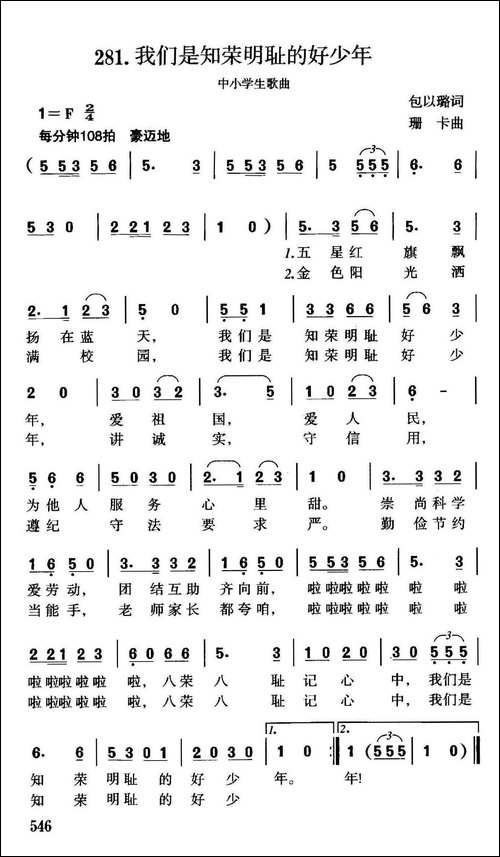 281.我们是知荣明耻的好少年
中小学生歌曲
1=F 2/4
包以璐词
每分钟108拍 豪迈地
珊 卡曲
( 5 5 5 3 5 6 | 5. 3 | 5 5 5 3 5 6 | 5 5 5 5 | 6. 6 |
5 3 0 | 2 2 2 1 2 3 | 1 0 ) | 5. 3 5 6 | 5. 3 |
1.五 星 红 旗 飘
2.金 色 阳 光 洒
2. 1 2 3 | 5 0 | 5 5 1 | 3 3 6 6 | 5 6 3 |
扬 在 蓝 天, 我 们 是 知 荣 明 耻 好 少
满 校 园, 我 们 是 知 荣 明 耻 好 少
2 0 | 3 0 3 2 | 3. 5 | 1 0 2 3 | 6 - |
年, 爱 祖 国, 爱 人 民,
年, 讲 诚 实, 守 信 用,
5 6 6 | 5 0 3 0 | 2. 1 2 3 | 1 0 | 3. 3 3 2 |
为 他 人 服 务 心 里 甜。 崇 尚 科 学
遵 纪 守 法 要 求 严。 勤 俭 节 约
1 6 5 0 | 3. 3 3 2 | 1 6 5 0 | 5 5 5 3 5 6 | 5. 3 |
爱 劳 动, 团 结 互 助 齐 向 前, 啦 啦啦 啦 啦 啦 啦
当 能 手, 老 师 家 长 都 夸 咱, 啦 啦啦 啦 啦 啦 啦
2 2 2 1 2 3 | 6 0 6 6 | 5. 3 | 1 0 2 0 | 3 0 5 5 5 |
啦 啦啦 啦 啦 啦, 八 荣 八 耻 记 心 中, 我们是
啦 啦啦 啦 啦 啦, 八 荣 八 耻 记 心 中, 我们是
6. 6 | 5 3 0 1 | 2 0 3 0 | 1. 1 0 :| 2. 1 ( 5 5 5 | 1 0 ) ‖
知 荣 明 耻 的 好 少 年。 年!
知 荣 明 耻 的 好 少
546